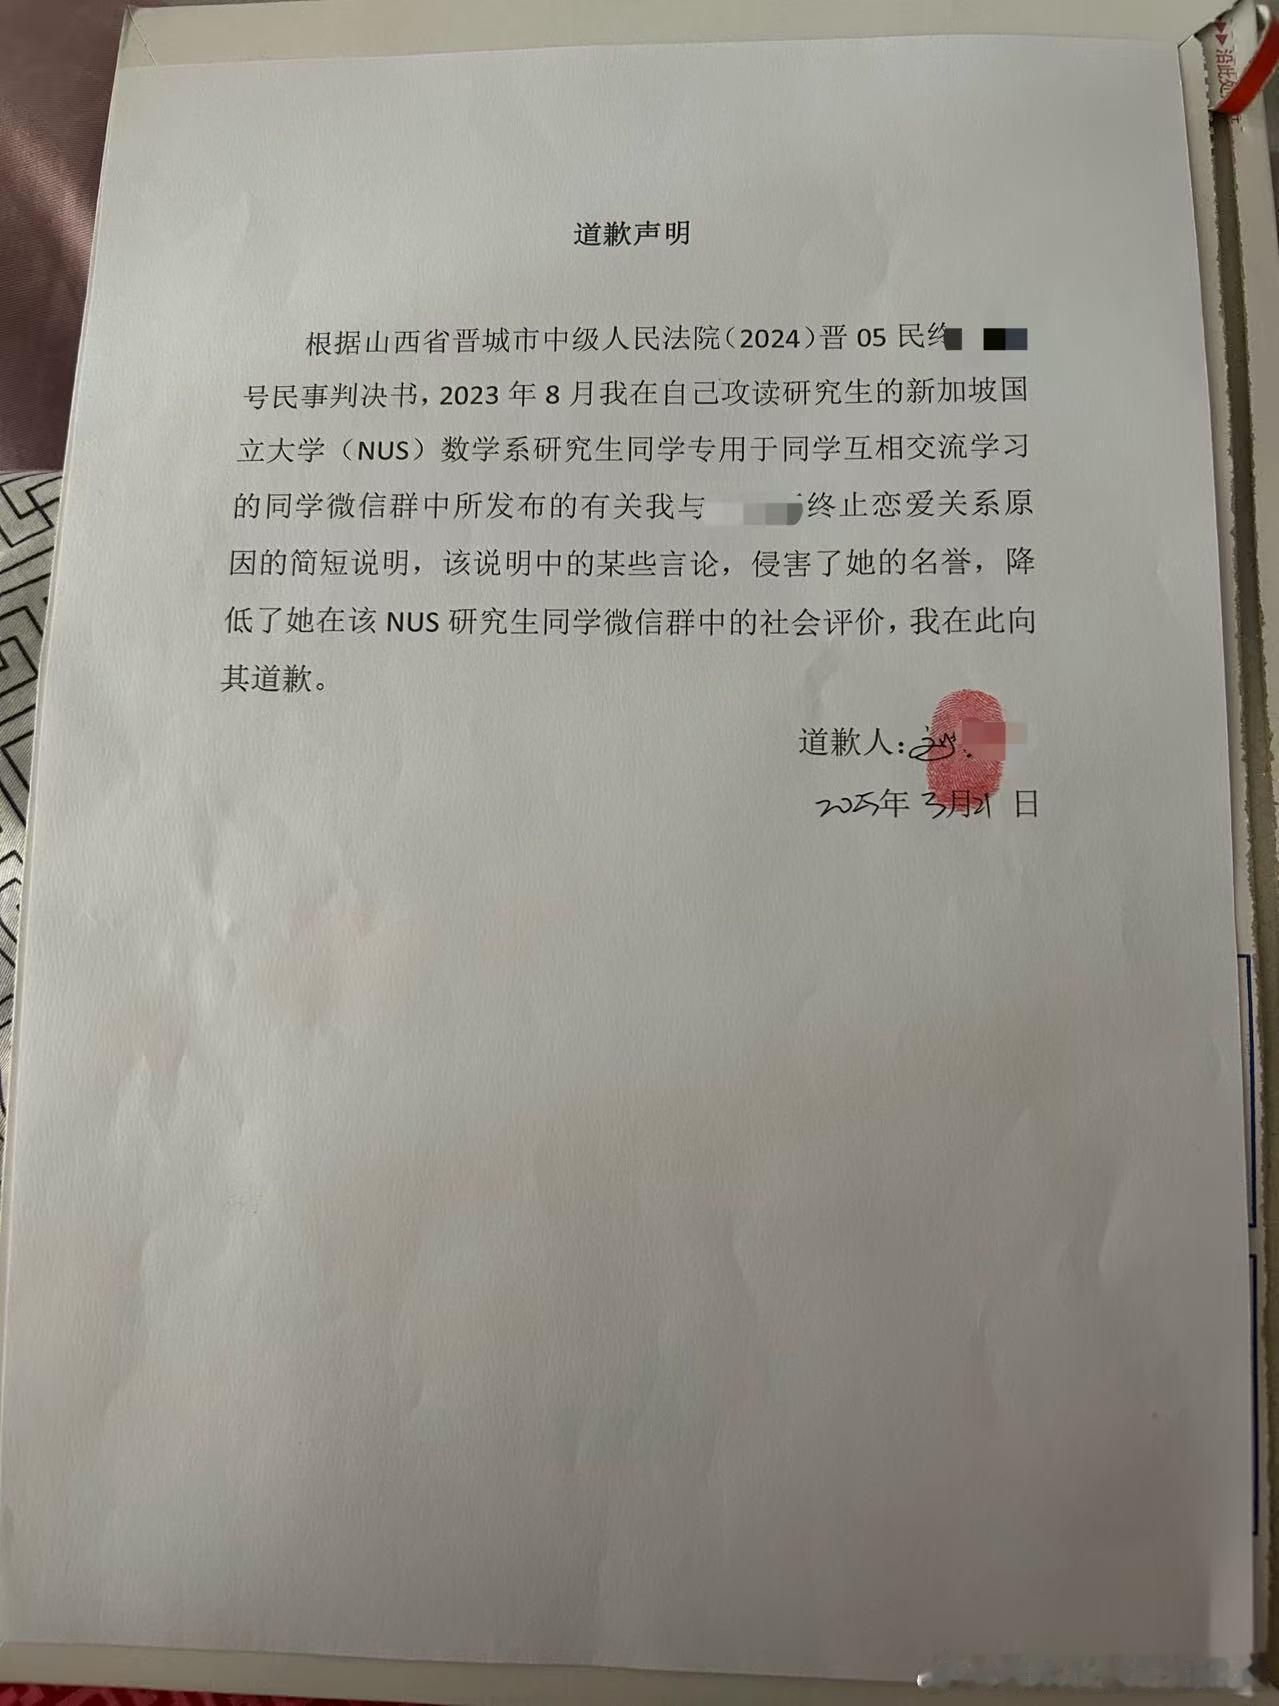 道歉声明
根据山西省晋城市中级人民法院（2024）晋 05 民终
号民事判决书，2023 年 8 月我在自己攻读研究生的新加坡国
立大学（NUS）数学系研究生同学专用于同学互相交流学习
的同学微信群中所发布的有关我与 终止恋爱关系原
因的简短说明，该说明中的某些言论，侵害了她的名誉，降
低了她在该 NUS 研究生同学微信群中的社会评价，我在此向
其道歉。
道歉人：
2025年 3月21 日
沿此处